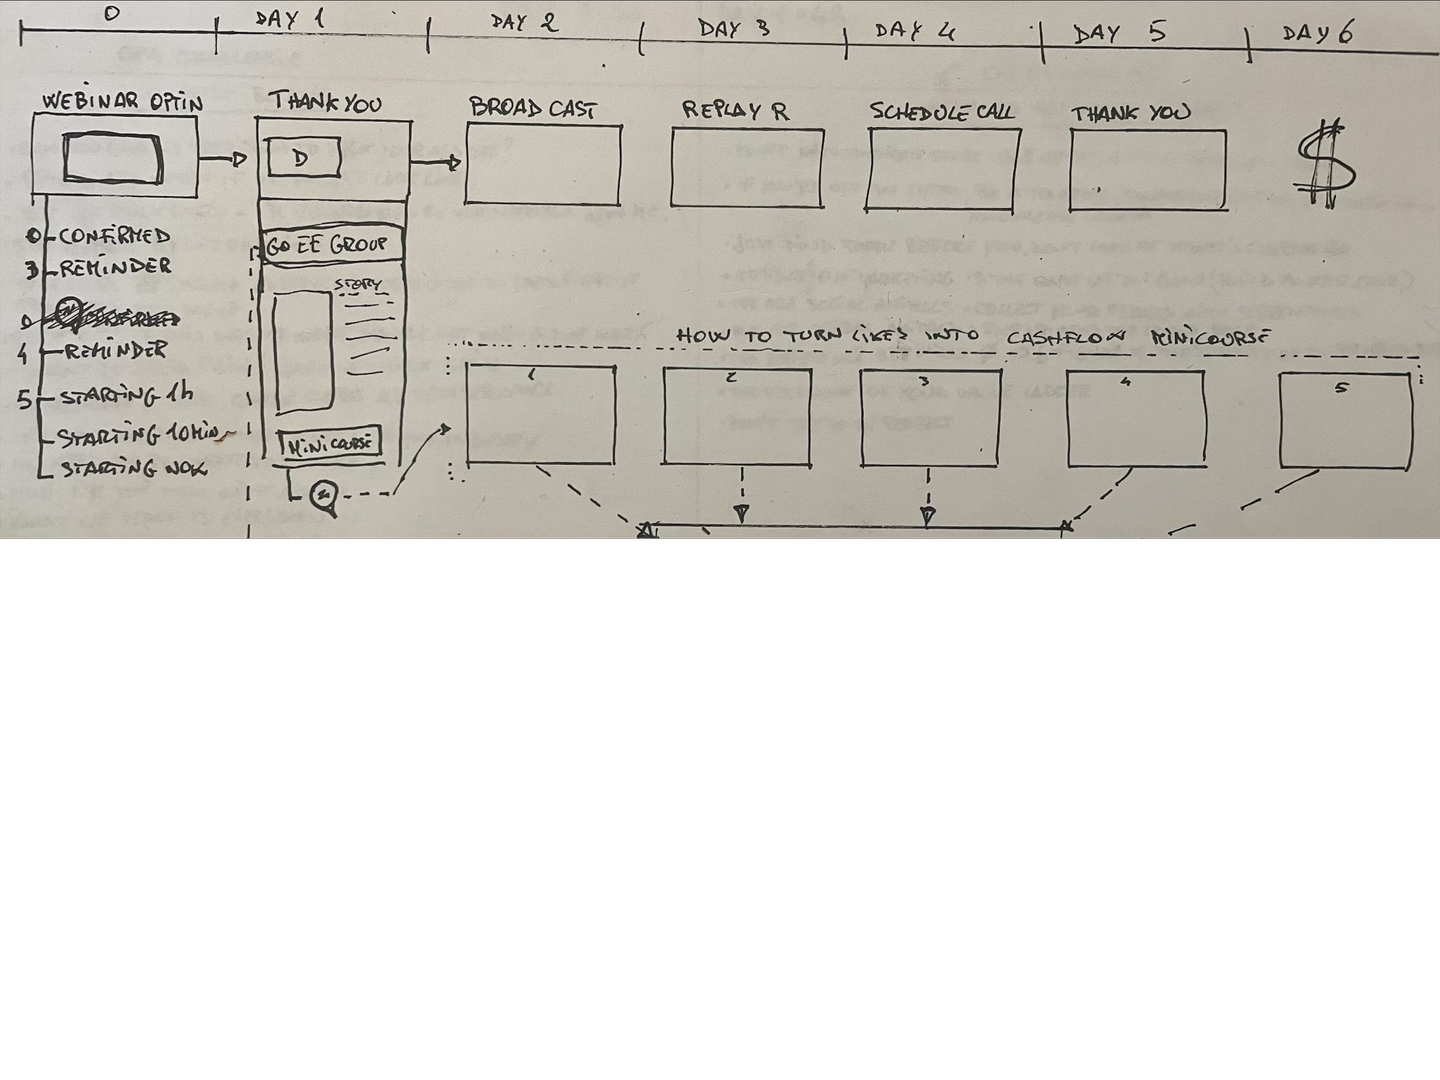 0 DAY 1 DAY 2 DAY 3 DAY 4 DAY 5 DAY 6
WEBINAR OPTIN THANK YOU BROADCAST REPLAY R SCHEDULE CALL THANK YOU $
D
0 CONFIRMED
3 REMINDER
0
4 REMINDER
5 STARTING 1h
STARTING 10 MIN
STARTING NOW
GO EE GROUP
STORY
MINICOURSE
HOW TO TURN LIKES INTO CASHFLOW MINICOURSE
1 2 3 4 5